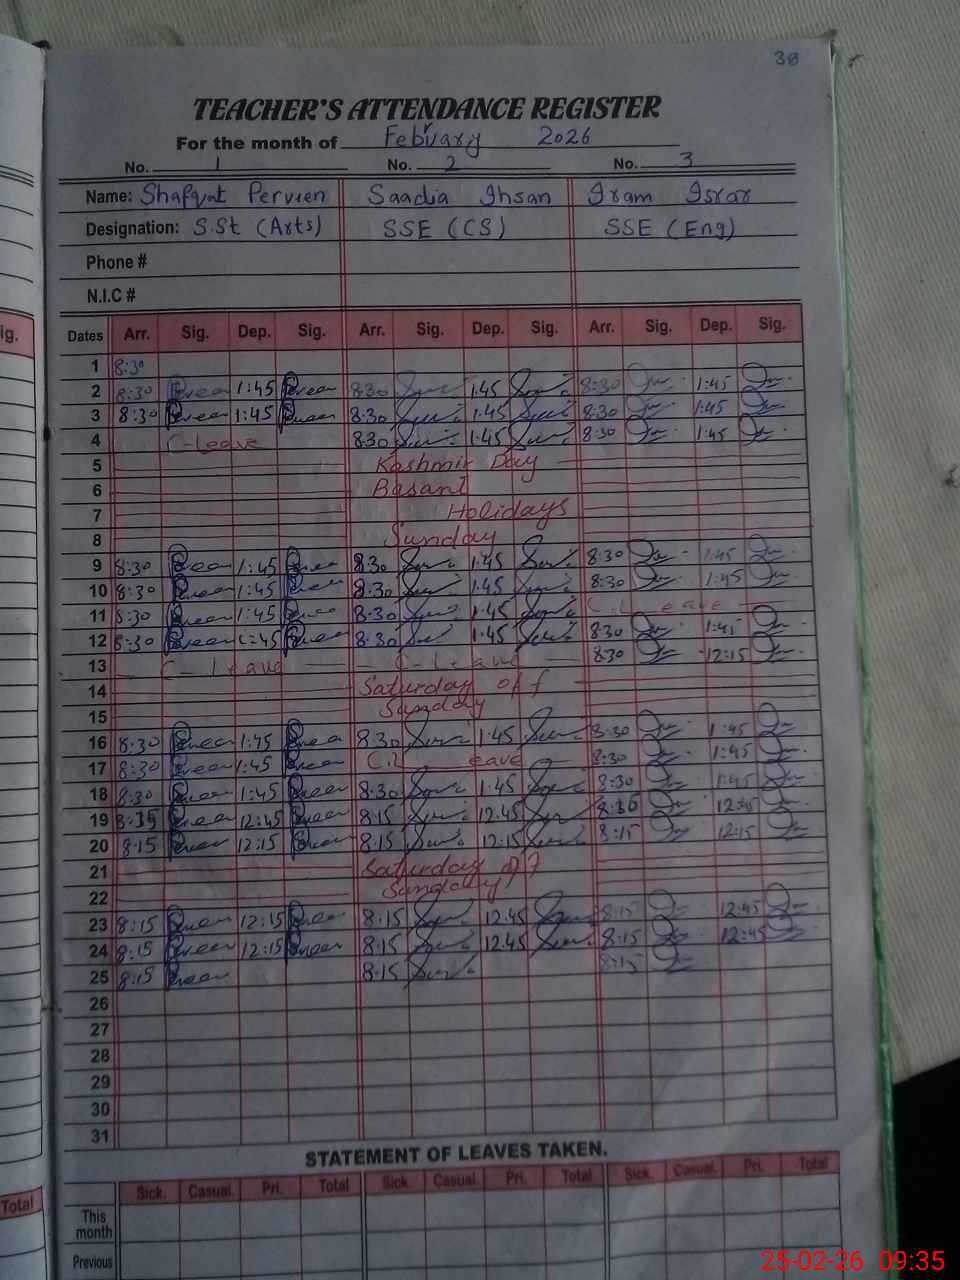 38
TEACHER'S ATTENDANCE REGISTER
For the month of February 2026
No. 1 No. 2 No. 3
Name: Shafqat Perveen Saadia Ihsan Iram Israr
Designation: S.St (Arts) SSE (CS) SSE (Eng)
Phone #
N.I.C #
ig. Dates Arr. Sig. Dep. Sig. Arr. Sig. Dep. Sig. Arr. Sig. Dep. Sig.
1 8:30
2 8:30 1:45 8:30 1:45 8:30 1:45
3 8:30 1:45 8:30 1:45 8:30 1:45
4 C-Leave 8:30 1:45 8:30 1:45
5 Kashmir Day
6 Basant
7 Holidays
8 Sunday
9 8:30 1:45 8:30 1:45 8:30 1:45
10 8:30 1:45 8:30 1:45 8:30 1:45
11 8:30 1:45 8:30 1:45 C.Leave
12 8:30 1:45 8:30 1:45 8:30 1:45
13 C-Leave C-Leave 8:30 12:15
14 Saturday off
15 Sunday
16 8:30 1:45 8:30 1:45 8:30 1:45
17 8:30 1:45 C.Leave 8:30 1:45
18 8:30 1:45 8:30 1:45 8:30 1:45
19 12:45 8:15 12:45 12:45
20 8:15 12:15 8:15 12:15 8:15 12:15
21 Saturday off
22 Sunday
23 8:15 12:15 8:15 12:45 8:15 12:45
24 8:15 12:15 8:15 12:45 8:15 12:45
25 8:15 8:15 8:15
26
27
28
29
30
31
STATEMENT OF LEAVES TAKEN.
Total Sick. Casual. Pri. Total Sick. Casual. Pri. Total Sick. Casual. Pri. Total
This month
Previous
25-02-26 09:35